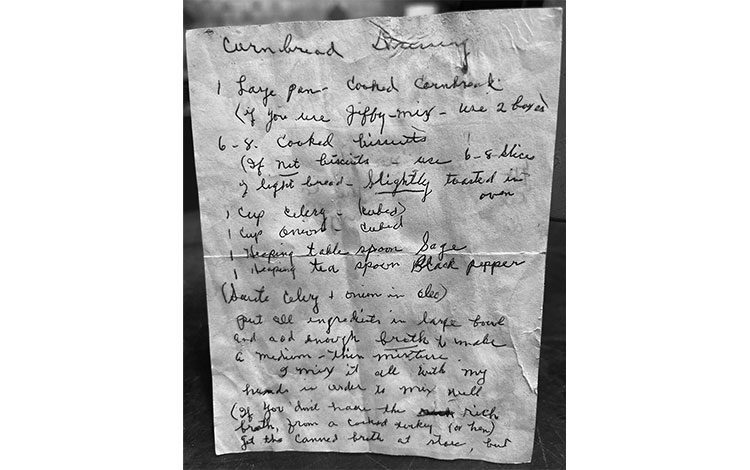 Cornbread Dressing
1 Large pan - Cooked Cornbread
(if you use Jiffy-mix - use 2 boxes)
6-8- Cooked biscuits
(If not biscuits - use 6-8 slices
of light bread - Slightly toasted in
oven
1 Cup Celery - (cubed)
1 Cup onion - cubed
1 Heaping table spoon Sage
1 Heaping tea spoon Black pepper
(Saute Celery + onion in oleo)
put all ingredients in large bowl
and add enough broth to make
a medium - thin mixture.
I mix it all with my
hands in order to mix well
(If you don't have the rich
broth, from a cooked turkey (or hen)
Get the canned broth at store, but